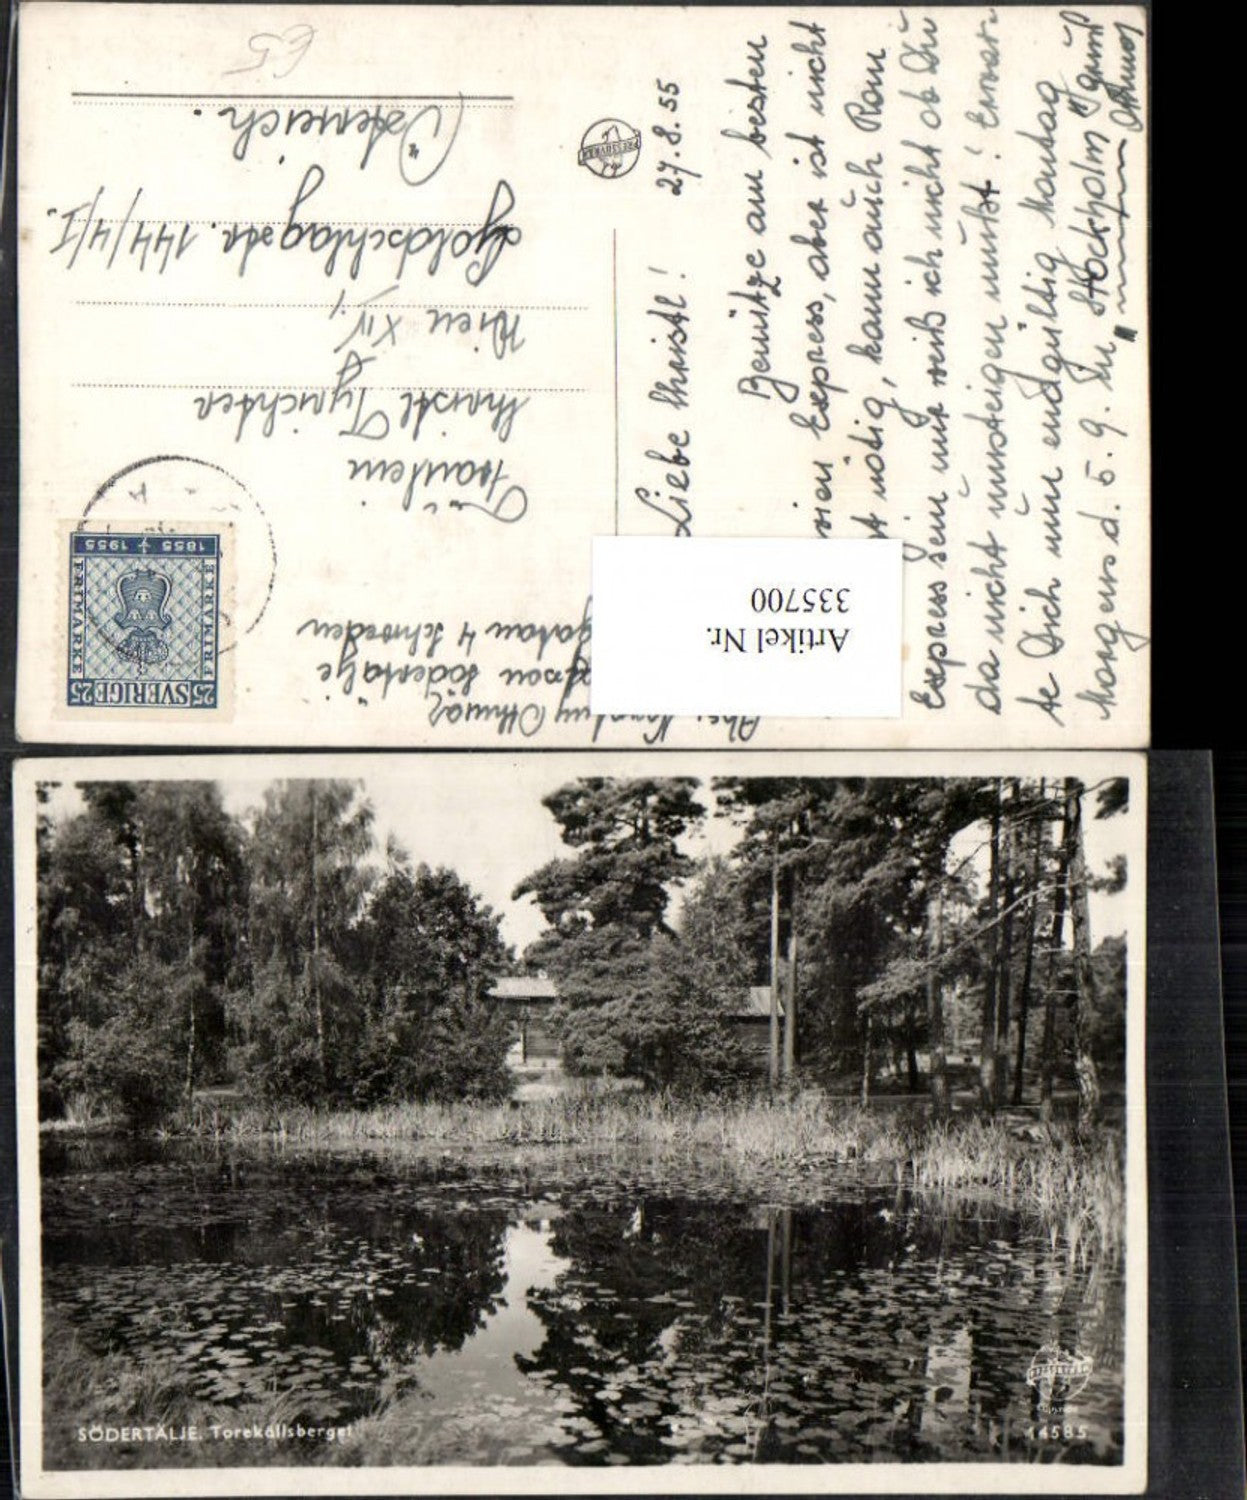 £5
Österreich.
Goldschlagstr. 144/4/I.
Wien XIV
Christl
Fräulein
1855 1955
FRIMÄRKE
FRIMÄRKE
25 SVERIGE 25
Södertälje
4 Schweden
Abs:
Ottmar
PRESSOVERA
27.8.55
Liebe Christl!
Benütze am besten
Express, aber ist nicht
nötig, kann auch kein
Express sein nur weiß ich nicht ob Du
da nicht umsteigen mußt! Erwar-
te Dich nun endgültig Montag
Morgens d. 5. 9. in Stockholm
Artikel Nr.
335700
SÖDERTÄLJE. Torekällsberget
14585